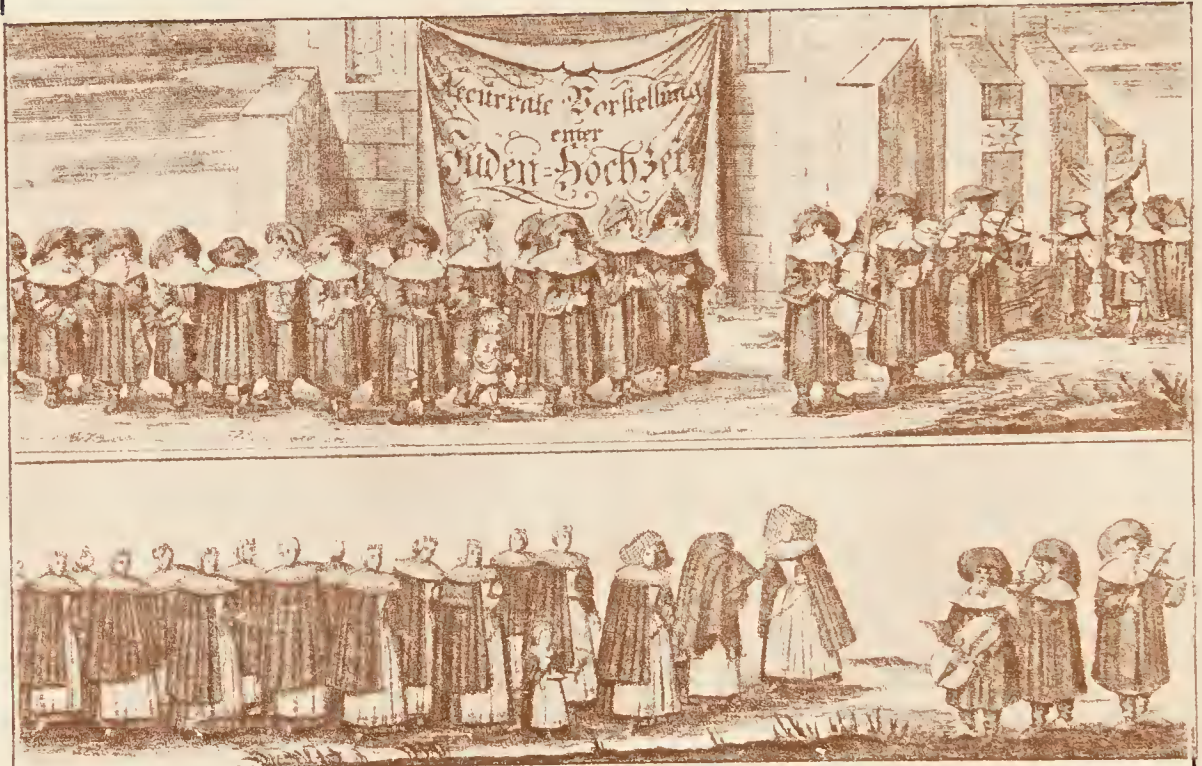 Accurrate Vorstellung
einer
Jüden-Hochzeit